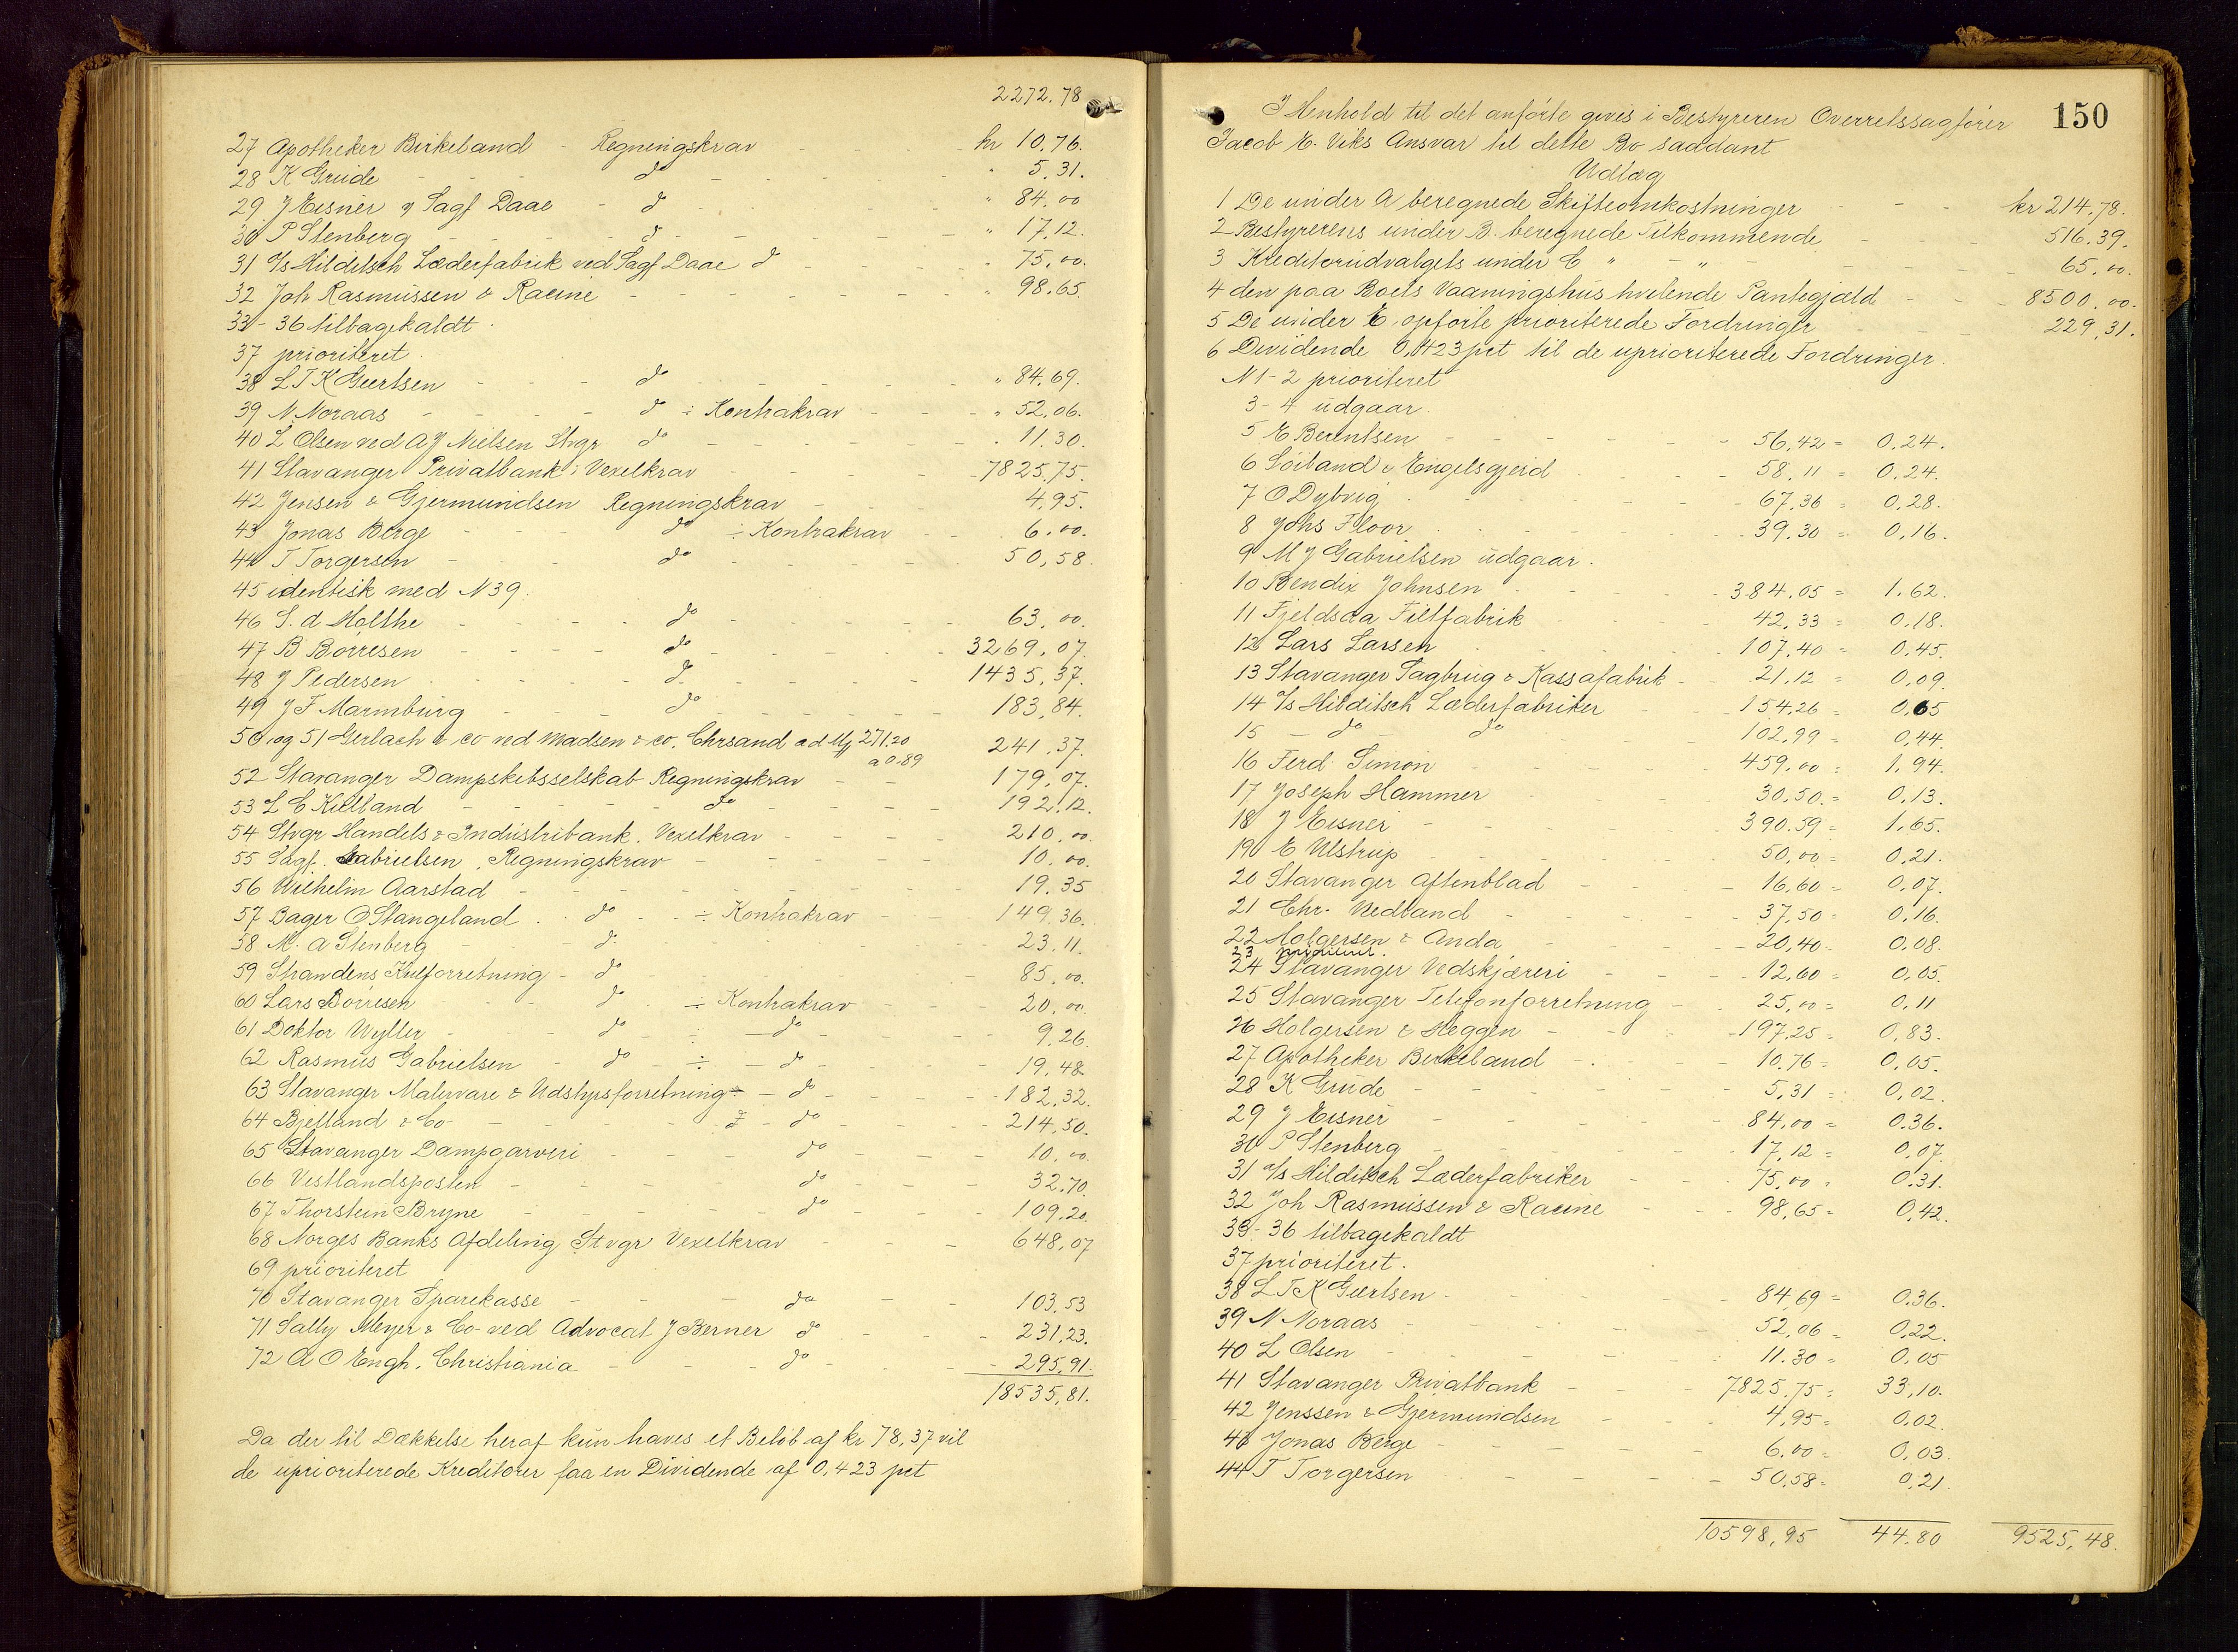 2272.78
27 Apotheker Birkeland - Regningskrav - - - kr 10.76.
28 K Grude - - do - - - " 5.31.
29 J Eisner v Sagf Daae - do - - - " 84.00
30 P Stenberg - - do - - - " 17.12.
31 A/s Hilditsch Læderfabrik ved Sagf Daae do - - - " 75.00.
32 Joh Rasmussen & Racine - - - " 98.65.
33 - 36 tilbagekaldt.
37 prioriteret.
38 L T K Geertsen - - - do - - - " 84.69.
39 N Noraas - - - do ÷ Kontrakrav - - - " 52.06.
40 L Olsen ved A J Nielsen Stvgr do - - - 11.30.
41 Stavanger Privatbank: Vexelkrav - - - 7825.75.
42 Jensen & Gjermundsen Regningskrav - - 4.95.
43 Jonas Berge - - do ÷ Kontrakrav - - 6.00.
44 T Torgersen - - do - - - 50,58.
45 identisk med N 39.
46 S. d Molthe - - - do - - - 63.00.
47 B Börresen - - - do - - - 3269.07.
48 J Pedersen - - - do - - - 1435.37.
49 J F Marmburg - - - do - - - 183,84.
50 og 51 Gerlach & co ved Madsen & co. Chrsand ad Mj 271.20 241.37.
a 0.89
52 Stavanger Dampskibsselskab Regningskrav - - 179.07.
53 L C Kielland - - - do - - - 192.12.
54 Stvgr Handels & Industribank. Vexelkrav - - - 210.00
55 Sagf. Gabrielsen. Regningskrav - - - 10.00.
56 Wilhelm Aarstad - - - 19.35
57 Bager O Stangeland . do - ÷ Kontrakrav - - 149.36.
58 M. A Stenberg - - do - - - 23.11.
59 Strandens Kulforretning - do - - - 85.00.
60 Lars Börresen - - do - ÷ Kontrakrav - - - 20.00.
61 Doktor Wyller - - do - ÷ - do - - - 9.26.
62 Rasmus Gabrielsen - do ÷ - do - - - 19.48
63 Stavanger Malervare & Udstyrsforretning ÷ - do - - - 182.32.
64 Bjelland & Co - - - ÷ - do - - - 214,50.
65 Stavanger Dampgarveri - - - do - - - 10.00.
66 Vestlandsposten - - - do - - - 32.70.
67 Thorstein Bryne - - - do - - - 109.20.
68 Norges Banks Afdeling Stvgr Vexelkrav - - - 648,07
69 prioriteret
70 Stavanger Sparekasse - - - do - - 103.53
71 Sally Meyer & Co ved Advocat J Berner do - - - 231,23.
72 A O Engh. Christiania - - - do - - - 295,91.
18535,81.
Da der til Dækkelse heraf kun haves et Belöb af kr 78,37 vil
de uprioriterede Kreditorer faa en Dividende af 0,423 pct
150
I Henhold til det anförte gives i Bestyreren Overretssagförer
Jacob E. Viks Ansvar til dette Bo saadant
Udlæg
1 De under A beregnede Skifteomkostninger - - - kr 214,78.
2 Bestyrerens under B. beregnede Tilkommende - - - 516.39.
3 Kreditorudvalgets under C " - " - - - 65.00.
4 den paa Boets Vaaningshus hvilende Pantegjæld - - - 8500.00.
5 De under E. opförte prioriterede Fordringer - - 229,31.
6 Dividende 0,423 pct til de uprioriterede Fordringer.
N 1 - 2 prioriteret
3 - 4 udgaar.
5 E Berentsen - - - 56,42 = 0.24.
6 Söiland & Engelsgjerd - - - 58.11 = 0.24.
7 O Dybvig - - - 67,36 = 0,28.
8 Johs Floor - - - 39.30 = 0,16.
9 M J Gabrielsen udgaar.
10 Bendix Johnsen - - - 384,05 = 1.62.
11 Fjeldsaa Filtfabrik - - - 42,33 = 0,18.
12 Lars Larsen - - - 107.40 = 0,45.
13 Stavanger Sagbrug & Kassafabrik - - 21.12 = 0,09.
14 A/s Hilditsch Læderfabriker - - - 154.26 = 0,65
15 - do - do - - - 102.99 = 0,44.
16 Ferd. Simon - - - 459.00 = 1.94.
17 Joseph Hammer - - - 30.50. = 0,13.
18 J Eisner - - - 390.59 = 1.65.
19 E Ulstrup - - - 50,00 = 0.21.
20 Stavanger Aftenblad - - - 16,60 = 0,07.
21 Chr. Nedland - - - 37.50 = 0,16.
22 Holgersen & Anda - - - 20,40 = 0,08.
23 prioriteret.
24 Stavanger Vedskjæreri - - - 12,60 = 0,05.
25 Stavanger Telefonforretning - - 25,00 = 0,11
26 Holgersen & Heggen - - - 197.25 = 0,83.
27 Apotheker Birkeland - - - 10.76 = 0,05.
28 K Grude - - - 5,31 = 0,02.
29 J Eisner - - - 84,00 = 0.36.
30 P Stenberg - - - 17,12 = 0,07.
31 A/s Hilditsch Læderfabriker - - - 75,00 = 0.31.
32 Joh Rasmussen & Racine - - - 98,65 = 0,42.
33 - 36 tilbagekaldt
37 prioriteret.
38 L T K Geertsen - - - 84,69 = 0.36.
39 N Noraas - - - 52,06 = 0,22.
40 L Olsen - - - 11.30 = 0,05
41 Stavanger Privatbank - - - 7825.75 = 33,10.
42 Jenssen & Gjermundsen - - - 4,95 = 0,02.
43 Jonas Berge - - - 6.00 = 0,03.
44 T Torgersen - - - 50,58 = 0,21.
10598,95 44.80 9525,48.